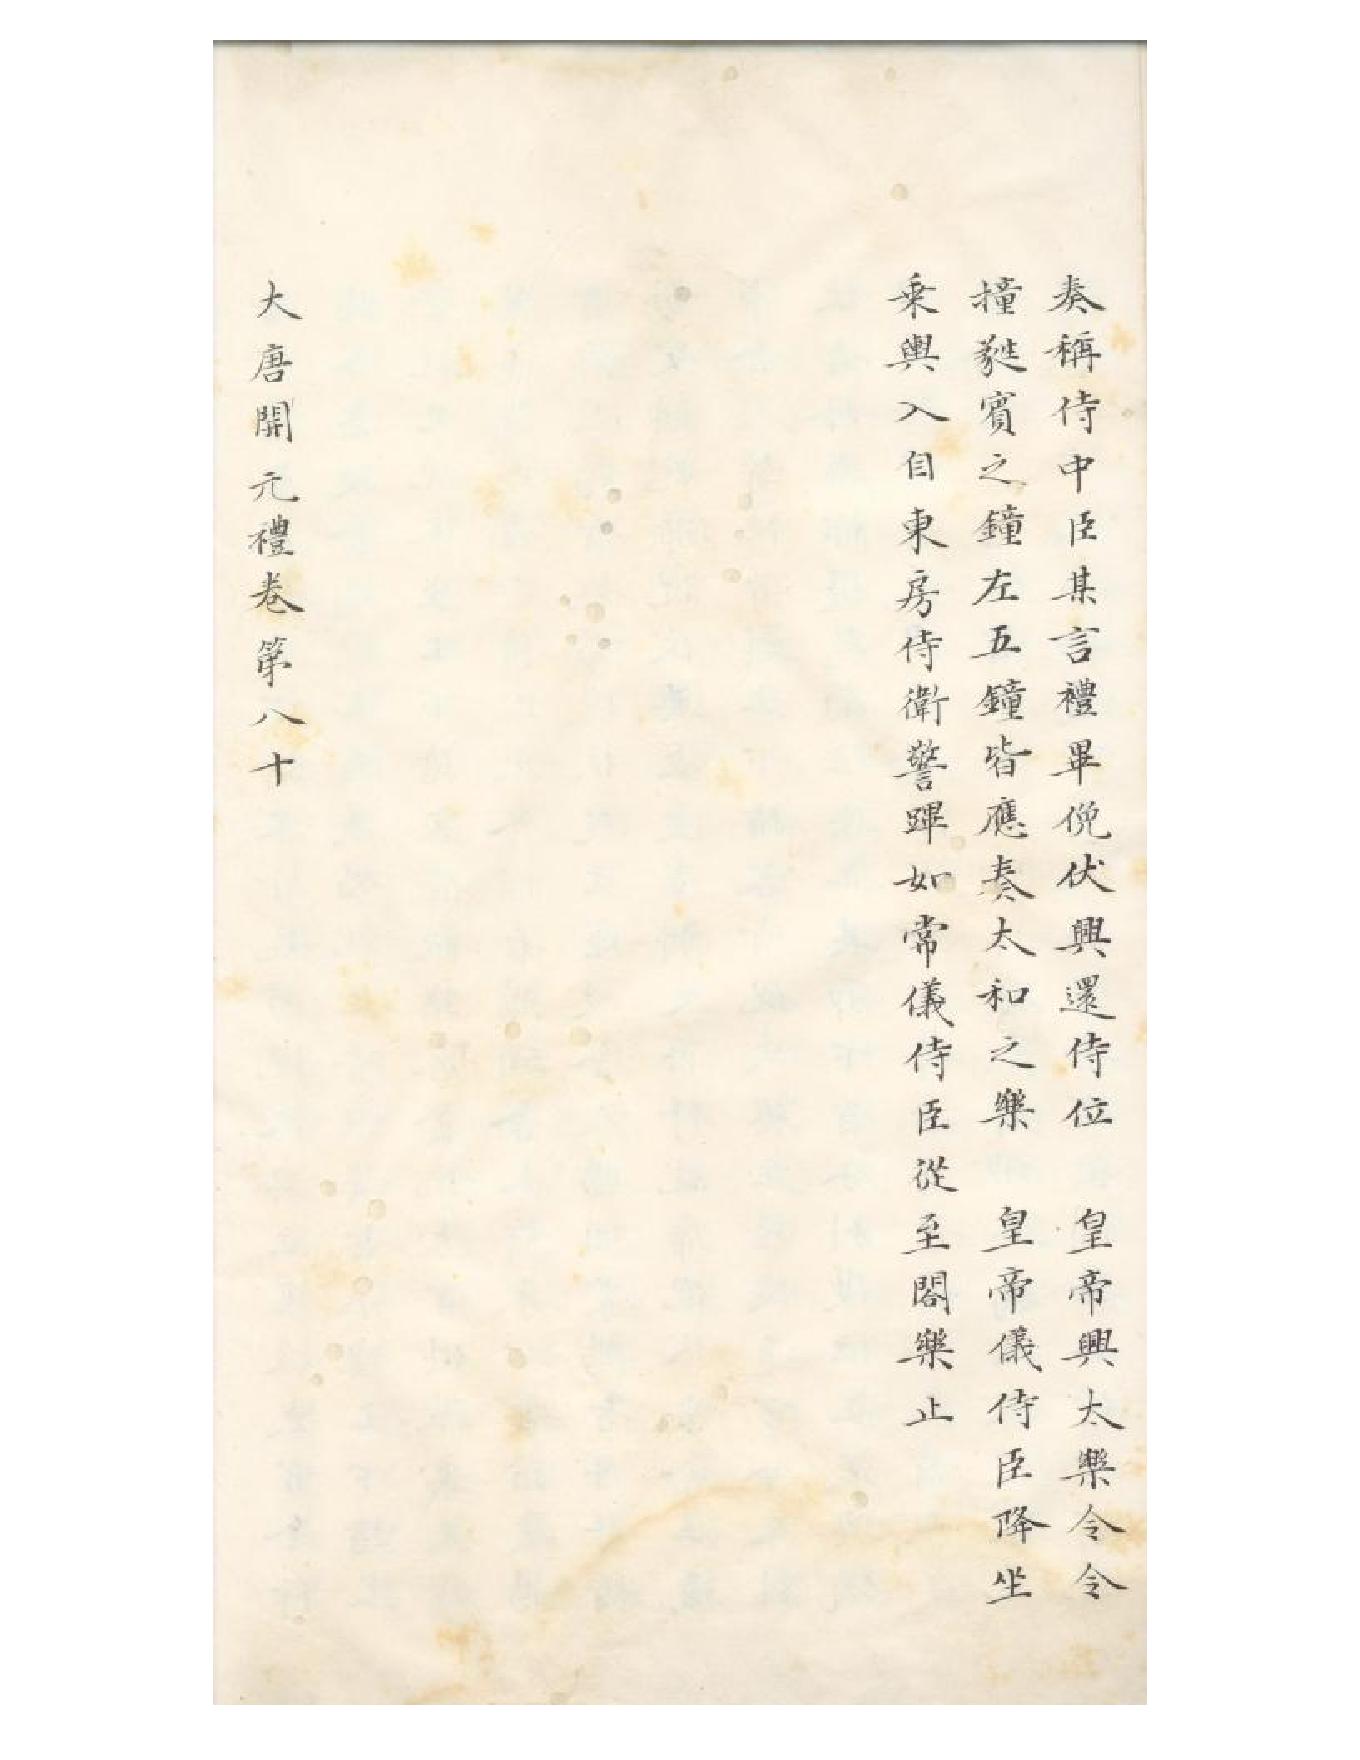 奏稱侍中臣某言禮畢俛伏興還侍位　皇帝興太樂令令
撞蕤賓之鐘左五鐘皆應奏太和之樂　皇帝儀侍臣降坐
乗輿入自東房侍衛警蹕如常儀侍臣從至閤樂止
大唐開元禮卷第八十